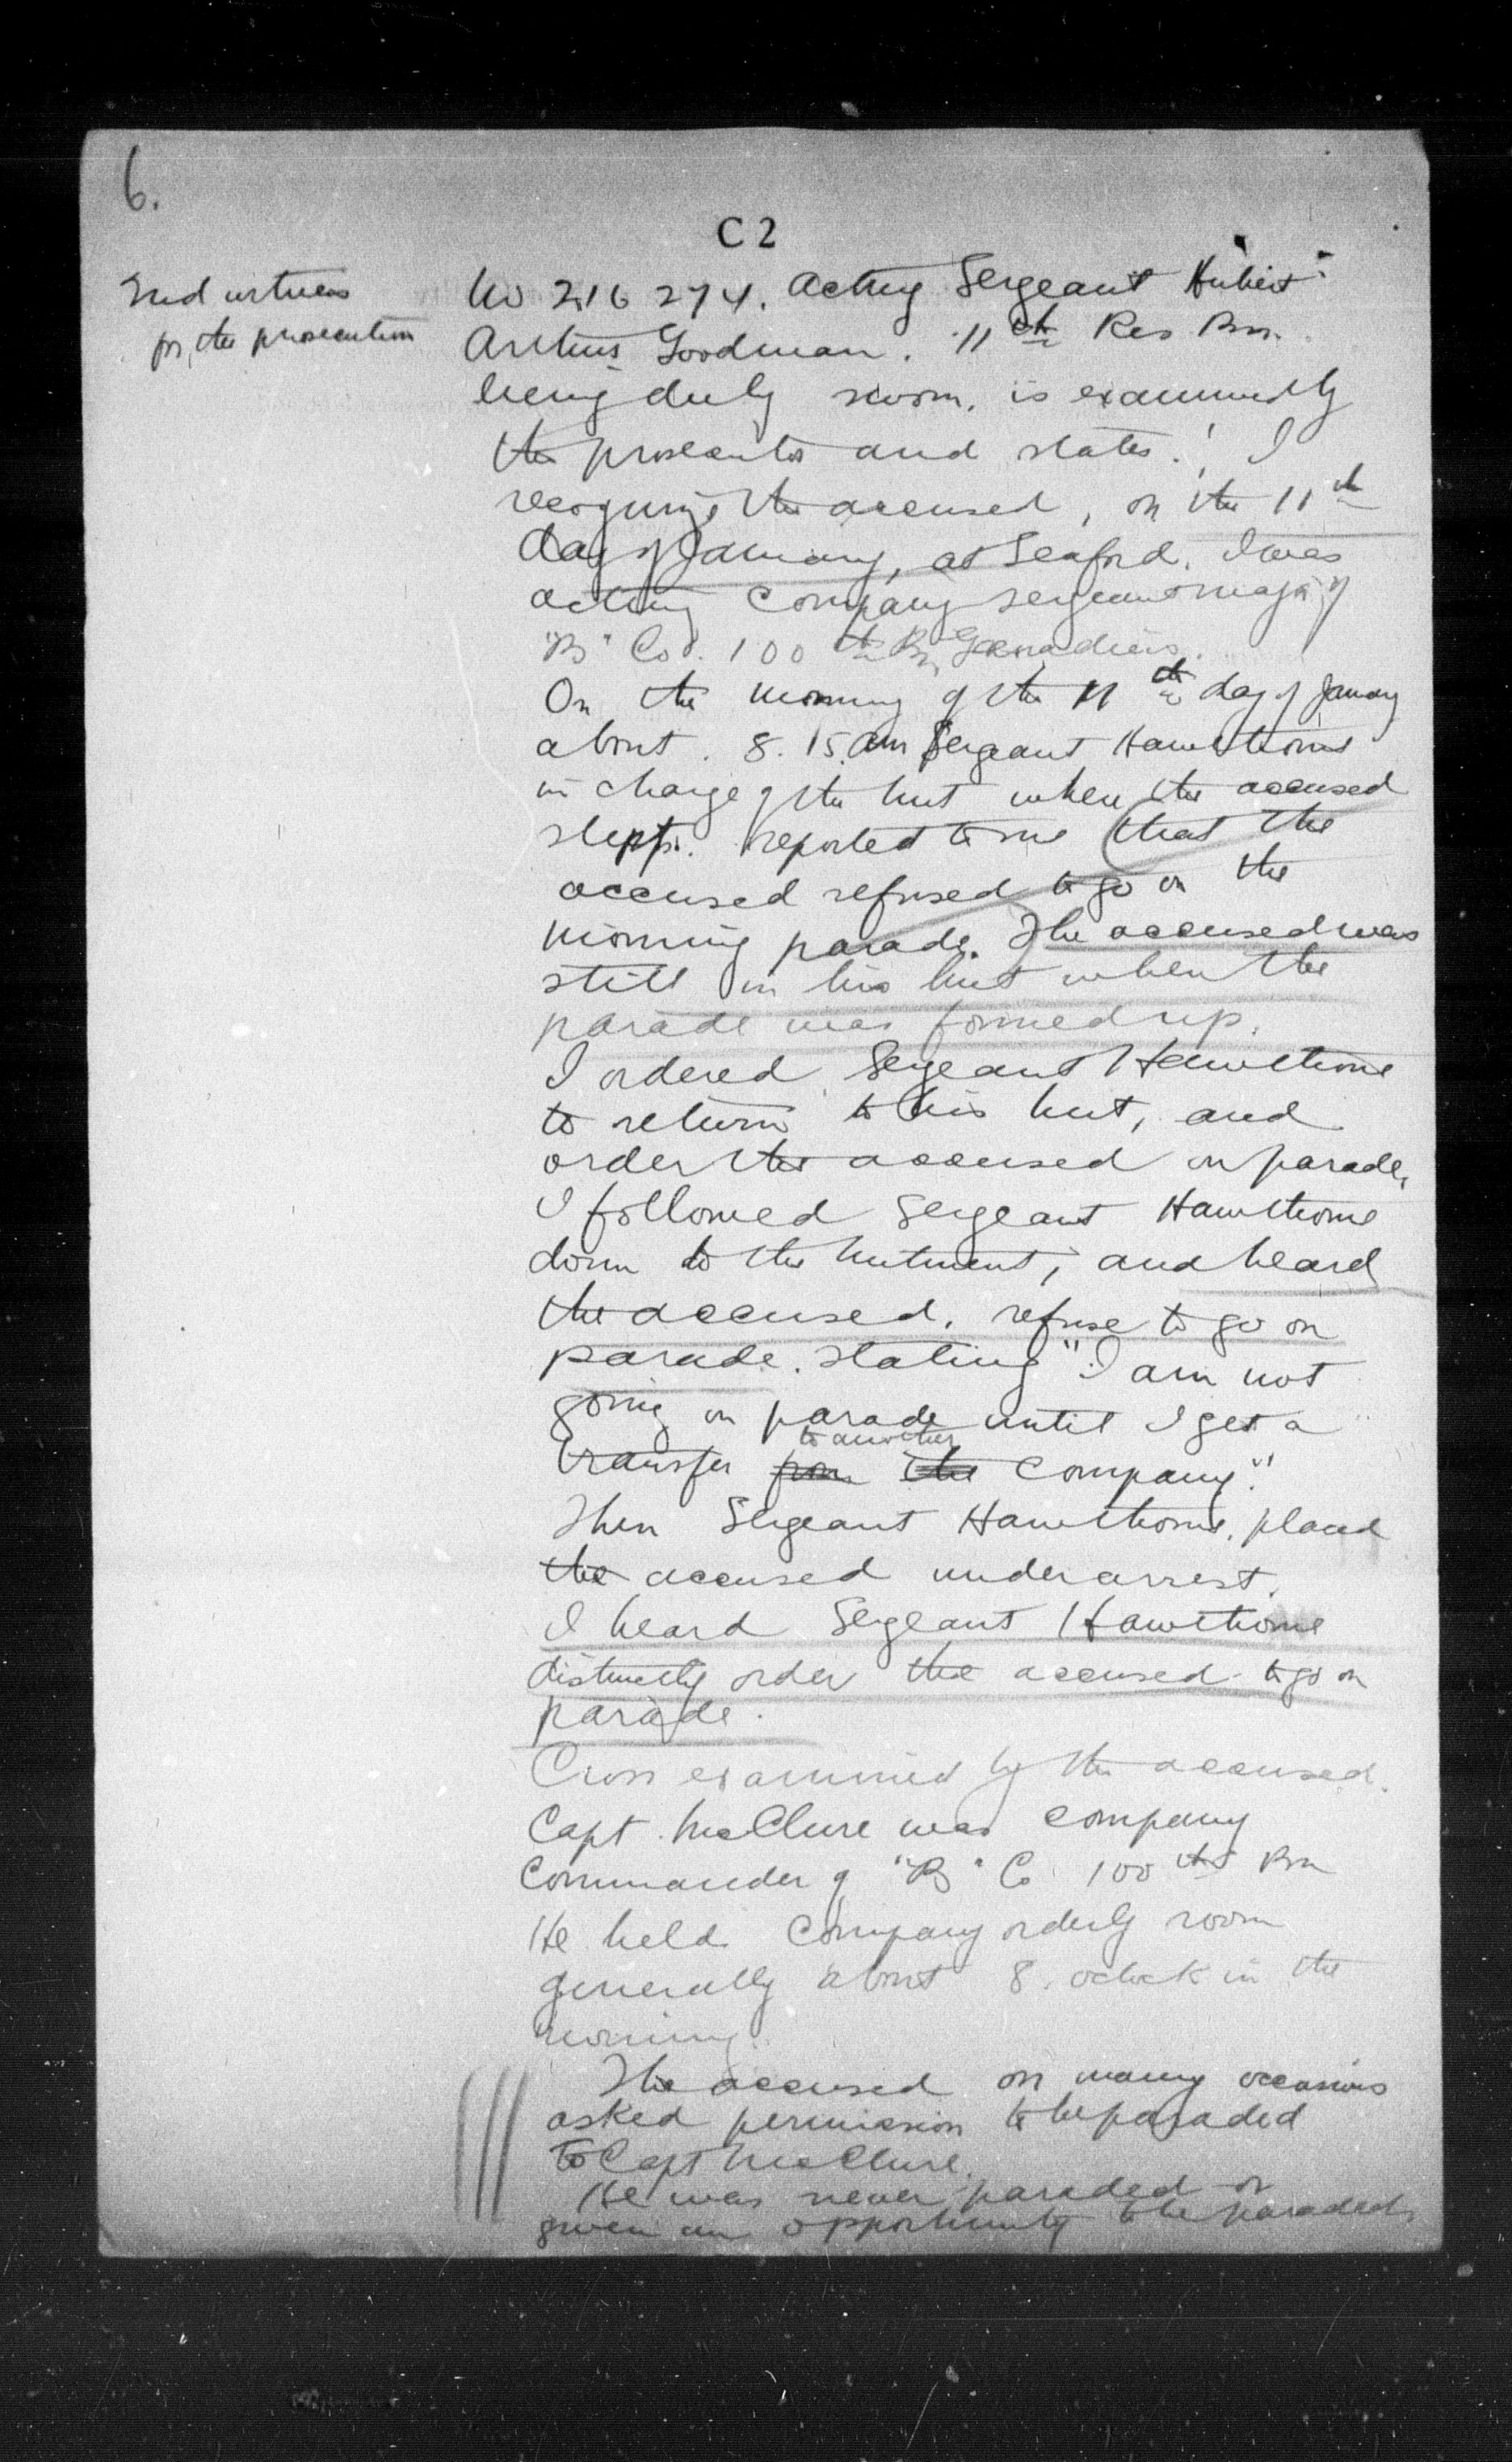 6.
C 2
2nd witness
for the prosecution
No 216 274. Acting Sergeant Hubert
Arthur Goodman. 11th Res Bn.
being duly sworn, is examined by
the prosecutor and states: I
recognise the accused, on the 11th
day of January, at Seaford, I was
acting Company sergeant major of
"B" Co. 100th Bn, Grenadiers.
On the morning of the 11th day of January
about 8.15. am Sergeant Hawthorne
in charge of the hut when the accused
slept. reported to me that the
accused refused to go on the
morning parade. The accused was
still in his hut when the
parade was formed up.
I ordered Sergeant Hawthorne
to return to his hut, and
order the accused on parade,
I followed Sergeant Hawthorne
down to the hutment, and heard
the accused. refuse to go on
parade. stating "I am not
going on parade until I get a
to another
transfer from the Company."
Then Sergeant Hawthorne, placed
the accused under arrest.
I heard Sergeant Hawthorne
distinctly order the accused to go on
parade.
Cross examined by the accused.
Capt. McClure was Company
Commander of "B" Co 100th Bn
He held Company orderly room
generally about 8. oclock in the
morning.
The accused on many occasions
asked permission to be paraded
to Capt McClure.
He was never paraded or
given an opportunity to be paraded.